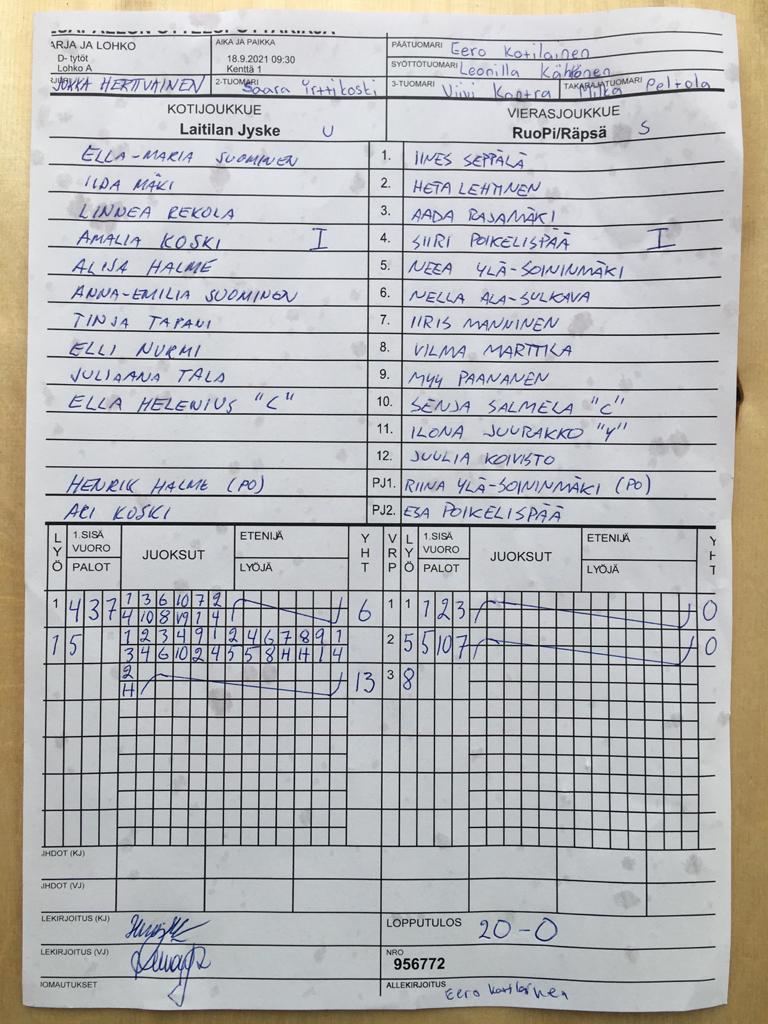 ARJA JA LOHKO
D- tytöt
Lohko A
JUKKA HERTTVAINEN
AIKA JA PAIKKA
18.9.2021 09:30
Kenttä 1
2-TUOMARI Saara
PÄÄTUOMARI Eero Kotilainen
SYÖTTÖTUOMARI Leonilla Kähönen
3-TUOMARI Viivi Kontra
TAKARAJATUOMARI Milka Peltola
KOTIJOUKKUE
Laitilan Jyske U
VIERASJOUKKUE
RuoPi/Räpsä S
ELLA-MARIA SUOMINEN 1. IINES SEPPÄLÄ
IIDA MÄKI 2. HETA LEHTINEN
LINNEA REKOLA 3. AADA RAJAMÄKI
AMALIA KOSKI I 4. SIIRI POIKELISPÄÄ I
ALISA HALME 5. NEEA YLÄ-SOININMÄKI
ANNA-EMILIA SUOMINEN 6. NELLA ALA-SULKAVA
TINJA TAPANI 7. IIRIS MANNINEN
ELLI NURMI 8. VILMA MARTTILA
JULIAANA TALA 9. MYY PAANANEN
ELLA HELENIUS "C" 10. SENJA SALMELA "C"
11. ILONA JUURAKKO "Y"
12. JUULIA KOIVISTO
HENRIK HALME (PO) PJ1. RIINA YLÄ-SOININMÄKI (PO)
ARI KOSKI PJ2. ESA POIKELISPÄÄ
LYÖ 1.SISÄ VUORO PALOT JUOKSUT ETENIJÄ LYÖJÄ YHT VRP LYÖ 1.SISÄ VUORO PALOT JUOKSUT ETENIJÄ LYÖJÄ YHT
1 4 3 7 1 3 6 10 7 2 6 1 1 1 2 3 0
4 10 8 1 4
1 5 1 2 3 4 9 1 2 4 6 7 8 9 1 2 5 5 10 7 0
3 4 6 10 2 4 5 5 8 H H 1 4
2 13 3 8
H
JHDOT (KJ)
JHDOT (VJ)
LEKIRJOITUS (KJ)
LOPPUTULOS 20-0
LEKIRJOITUS (VJ)
NRO
956772
IOMAUTUKSET
ALLEKIRJOITUS Eero Kotilainen